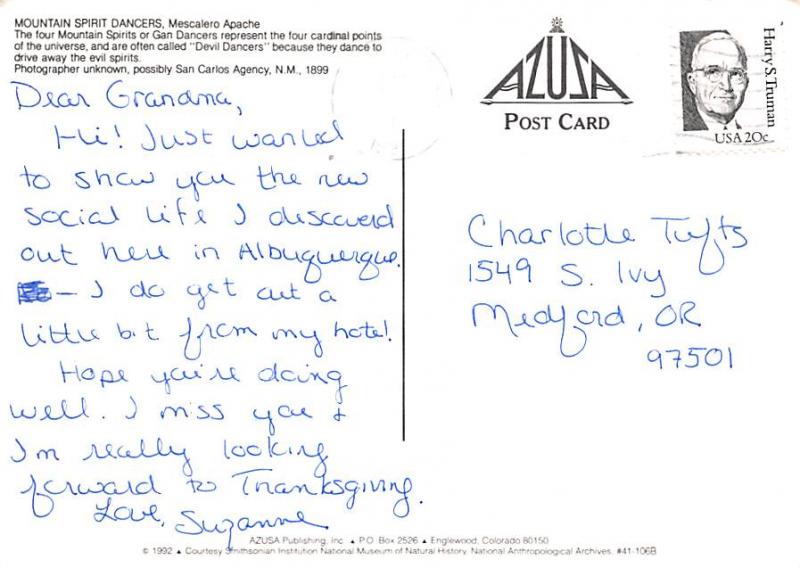 MOUNTAIN SPIRIT DANCERS, Mescalero Apache
The four Mountain Spirits or Gan Dancers represent the four cardinal points
of the universe, and are often called "Devil Dancers" because they dance to
drive away the evil spirits.
Photographer unknown, possibly San Carlos Agency, N.M., 1899
Dear Grandma,
Hi! Just wanted
to show you the new
social life I discovered
out here in Albuquerque.
— I do get out a
little bit from my hotel!
Hope you're doing
well. I miss you &
I'm really looking
forward to Thanksgiving.
Love, Suzanne
AZUSA
POST CARD
Harry S. Truman
USA 20c
Charlotte Tufts
1549 S. Ivy
Medford, OR
97501
AZUSA Publishing, Inc. ▲ P.O. Box 2526 ▲ Englewood, Colorado 80150
© 1992 ▲ Courtesy Smithsonian Institution National Museum of Natural History, National Anthropological Archives, #41-106B